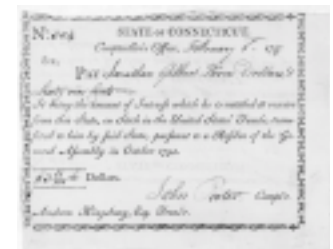 STATE OF CONNECTICUT,
Comptroller's Office, February
SIR,
PAY Jonathan Gilbert Three Dollars &
Sixty one Cents
It being the amount of Interest which he is entitled to receive
from this State, on Stock in the United States' Funds, trans-
ferred to him by said State, pursuant to a Resolve of the Ge-
neral Assembly in October 179
Dollars.
John Porter Compt.
Andrew Kingsbury, Esq.